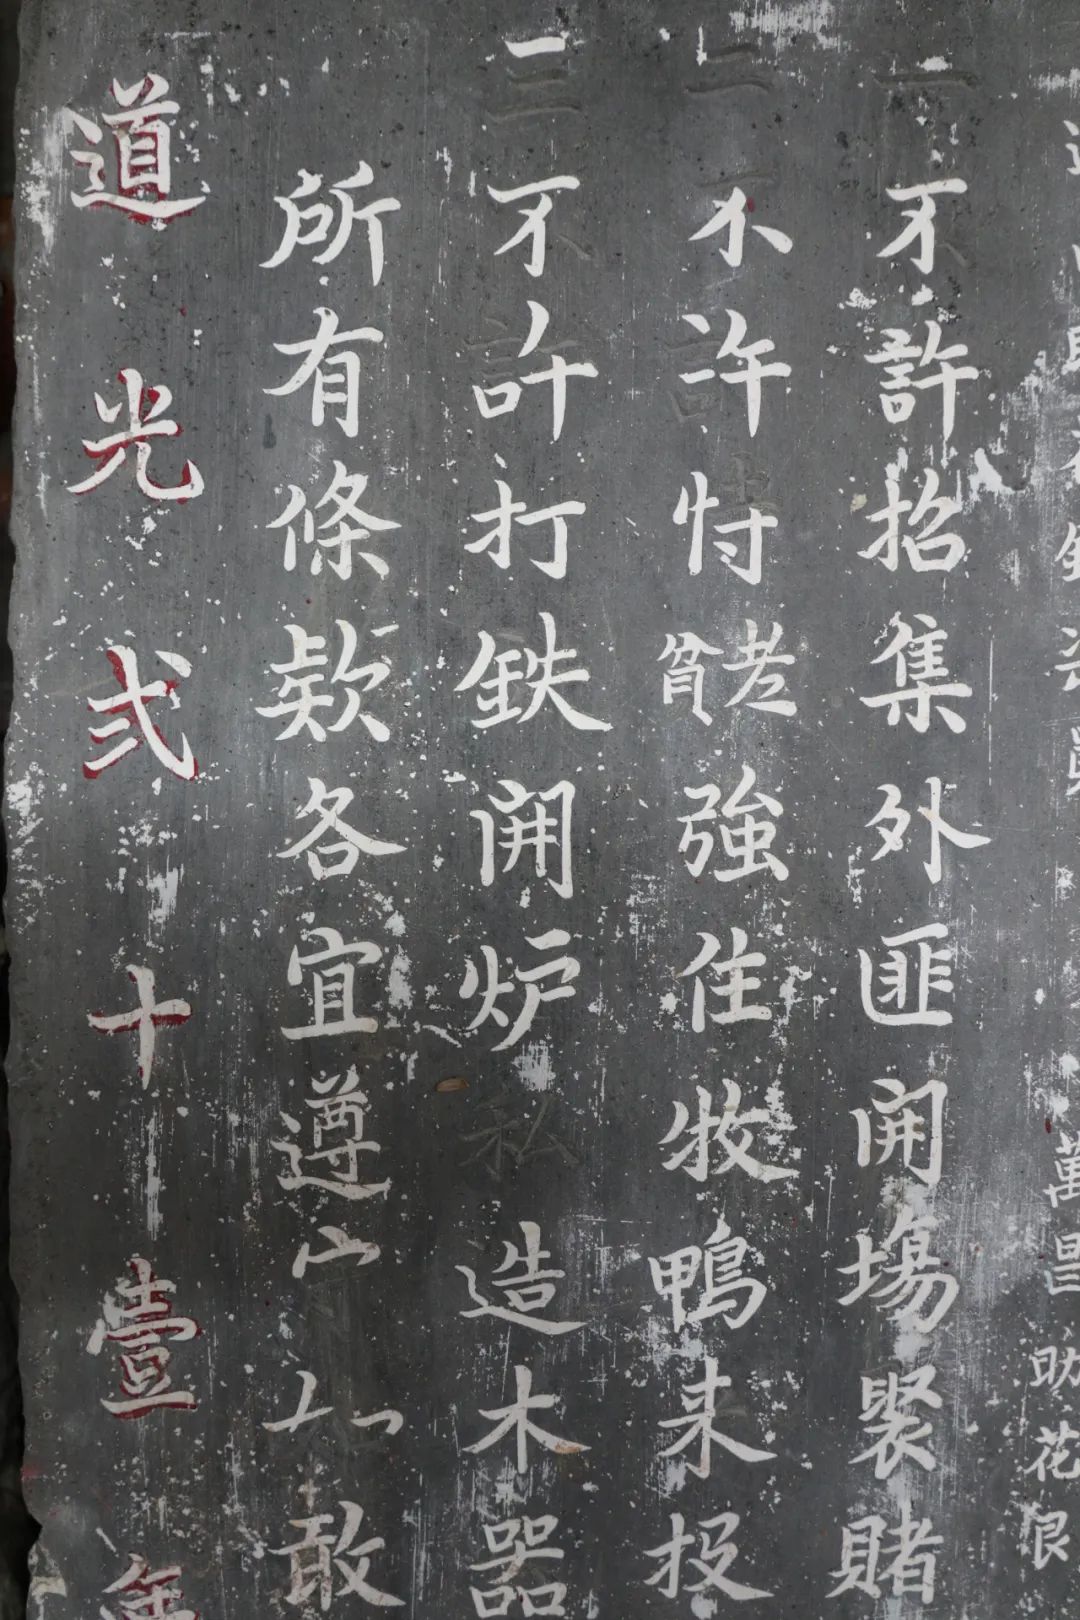 萬昌
助花艮
一不許招集外匪開場聚賭
二不許恃老強住牧鴨来投
三不許打鉄開炉私造木器
所有條款各宜遵守如敢
道光弍十壹年